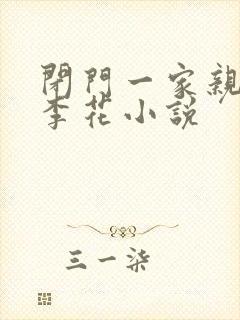 閉門一家親
李花小説
三一柒